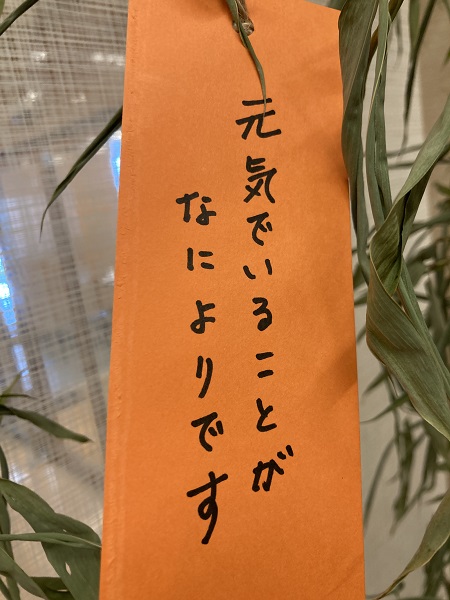 元気でいることが
なによりです